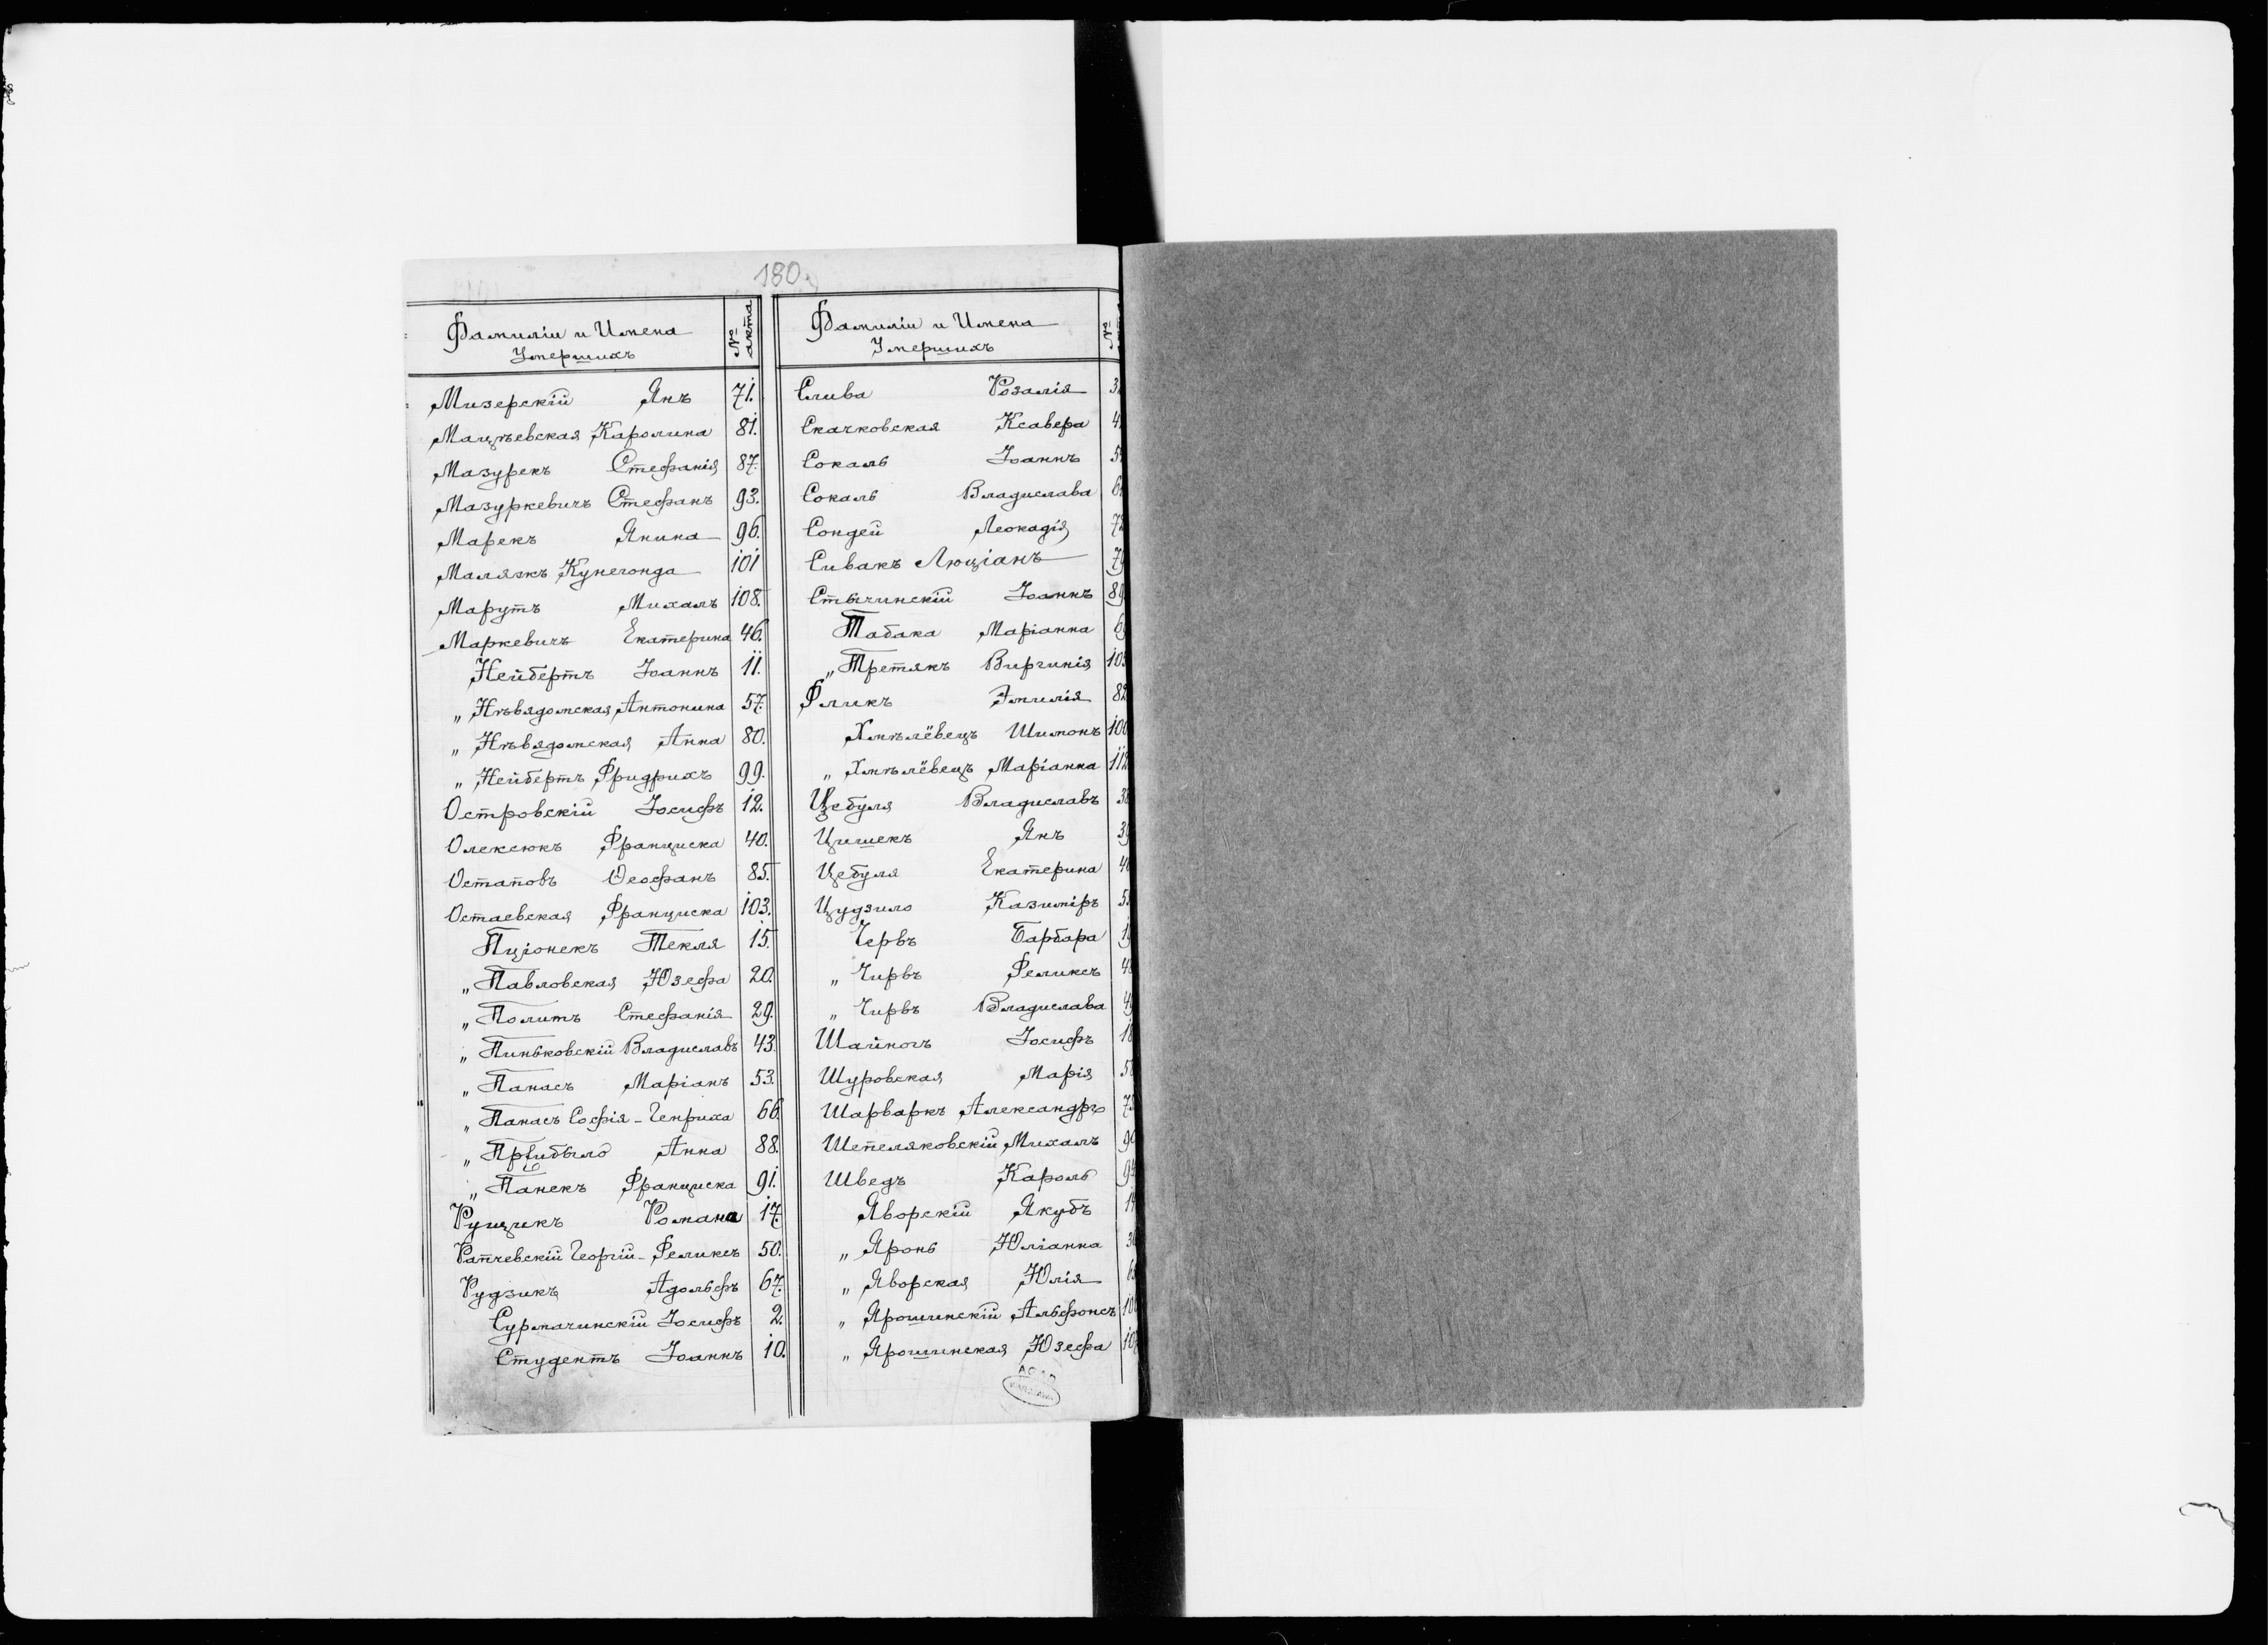 180.
Фамиліи и Имена
Умершихъ
№
акта
Мизерскій Янъ 71.
Мацѣевская Каролина 81.
Мазурекъ Стефанія 87.
Мазуркевичъ Стефанъ 93.
Марекъ Янина 96.
Малязкъ Кунегонда 101
Марутъ Михалъ 108.
Маркевичъ Екатерина 46.
Нейбертъ Іоаннъ 11.
„ Нѣвядомская Антонина 57.
„ Нѣвядомская Анна 80.
„ Нейбертъ Фридрихъ 99.
Островскій Іосифъ 12.
Олексюкъ Франциска 40.
Остаповъ Ѳеофанъ 85.
Остаевская Франциска 103.
Пціонекъ Текля 15.
„ Павловская Юзефа 20.
„ Политъ Стефанія 29.
„ Пиньковскій Владиславъ 43.
„ Панасъ Маріанъ 53.
„ Панасъ Софія-Генриха 66.
„ Прибыло Анна 88.
„ Панекъ Франциска 91.
Рущикъ Романа 17.
Рапчевскій Георгій-Феликсъ 50.
Рудзикъ Адольфъ 67.
Сурмачинскій Іосифъ 2.
Студентъ Іоаннъ 10.
Фамиліи и Имена
Умершихъ
№
Слива Розалія
Скачковская Ксавера
Сокаль Іоаннъ
Сокаль Владислава
Сондей Леокадія
Сивакъ Люціанъ
Стычинскій Іоаннъ 89
Табака Маріанна
„ Третякъ Виргинія
Фликъ Эмилія 82
Хмѣлёвецъ Шимонъ
„ Хмѣлёвецъ Маріанна 112
Цебуля Владиславъ
Цишекъ Янъ
Цебуля Екатерина
Цудзило Казиміръ
Червъ Барбара
„ Чирвъ Феликсъ
„ Чирвъ Владислава
Шайногъ Іосифъ
Шуровская Марія
Шарваркъ Александръ
Шепеляковскій Михалъ
Шведъ Кароль
Яворскій Якубъ
„ Яронь Юліанна
„ Яворская Юлія
„ Ярошинскій Альфонсъ
„ Ярошинская Юзефа
AGAD
WARSZAWA